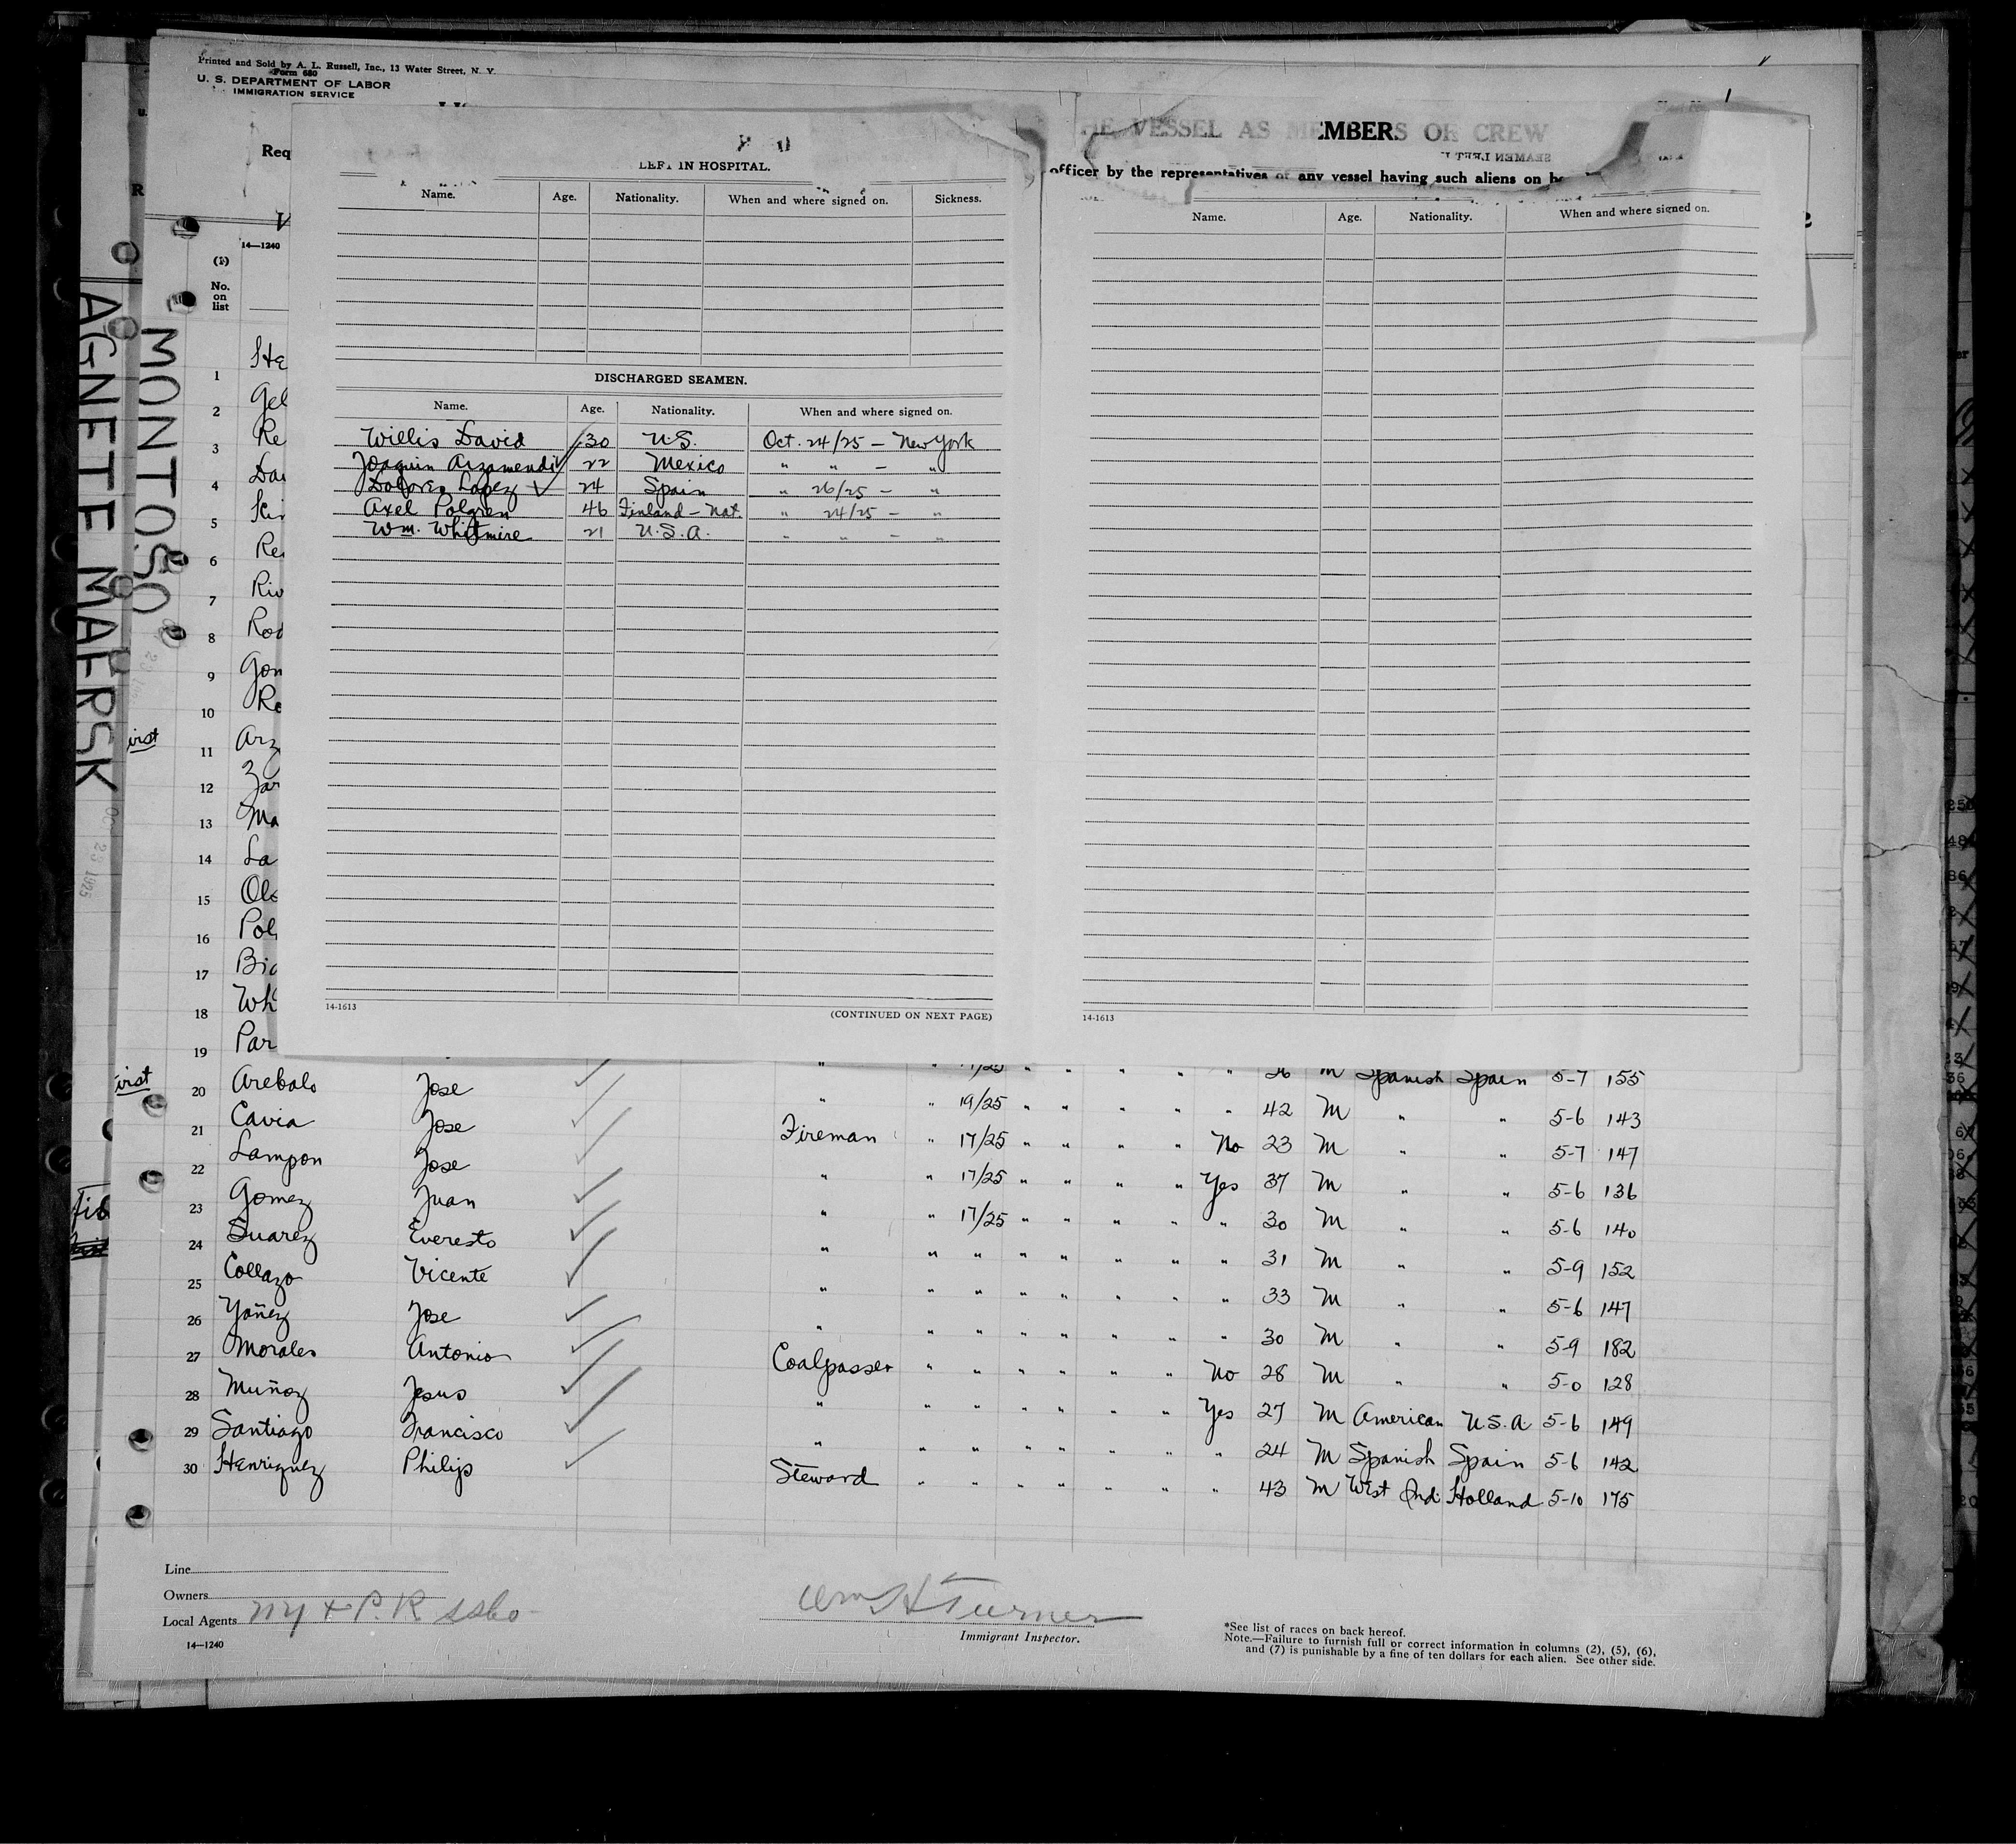 Printed and Sold by A. L. Russell, Inc., 13 Water Street, N. Y.
Form 680
U. S. DEPARTMENT OF LABOR
IMMIGRATION SERVICE
THE VESSEL AS MEMBERS OF CREW
SEAMEN LEFT
Req
officer by the representatives of any vessel having such aliens on
14—1240
(1)
No. on list
LEFT IN HOSPITAL.
Name. Age. Nationality. When and where signed on. Sickness.
Name. Age. Nationality. When and where signed on.
DISCHARGED SEAMEN.
Name. Age. Nationality. When and where signed on.
Willis David 30 U.S. Oct. 24/25 — New York
Joaquin Arzamendi 22 Mexico " " — "
Dolores Lopez 24 Spain " 26/25 — "
Axel Polgren 46 Finland - Nat. " 24/25 — "
Wm. Whitmire 21 U.S.A. " " — "
14-1613
(CONTINUED ON NEXT PAGE)
14-1613
MONTOSO
AGNETE MAERSK
Oct 23 1925
1 He
2 Gel
3 Re
4 Dav
5 Kir
6 Re
7 Riv
8 Rod
9 Gon
10 Ro
irst
11 Arz
12 Zar
13 Ma
14 La
15 Ols
16 Pol
17 Big
18 Wh
19 Par " " 17/25 " " " " " 26 M Spanish Spain 5-7 155
irst
20 Arebalo Jose " " 19/25 " " " " " 42 M " " 5-6 143
21 Cavia Jose Fireman " 17/25 " " " " No 23 M " " 5-7 147
22 Lampon Jose " " 17/25 " " " " Yes 37 M " " 5-6 136
23 Gomez Juan " " 17/25 " " " " " 30 M " " 5-6 140
24 Suarez Everesto " " " " " " " " 31 M " " 5-9 152
25 Collazo Vicente " " " " " " " " 33 M " " 5-6 147
26 Yañez Jose " " " " " " " " 30 M " " 5-9 182
27 Morales Antonio Coalpasser " " " " " " No 28 M " " 5-0 128
28 Muñoz Jesus " " " " " " " Yes 27 M American U.S.A 5-6 149
29 Santiago Francisco " " " " " " " " 24 M Spanish Spain 5-6 142
30 Henriquez Philip Steward " " " " " " " 43 M West Ind Holland 5-10 175
Line
Owners
Local Agents NY & P. R SSCo
14—1240
Wm H Turner
Immigrant Inspector.
*See list of races on back hereof.
Note.—Failure to furnish full or correct information in columns (2), (5), (6),
and (7) is punishable by a fine of ten dollars for each alien. See other side.